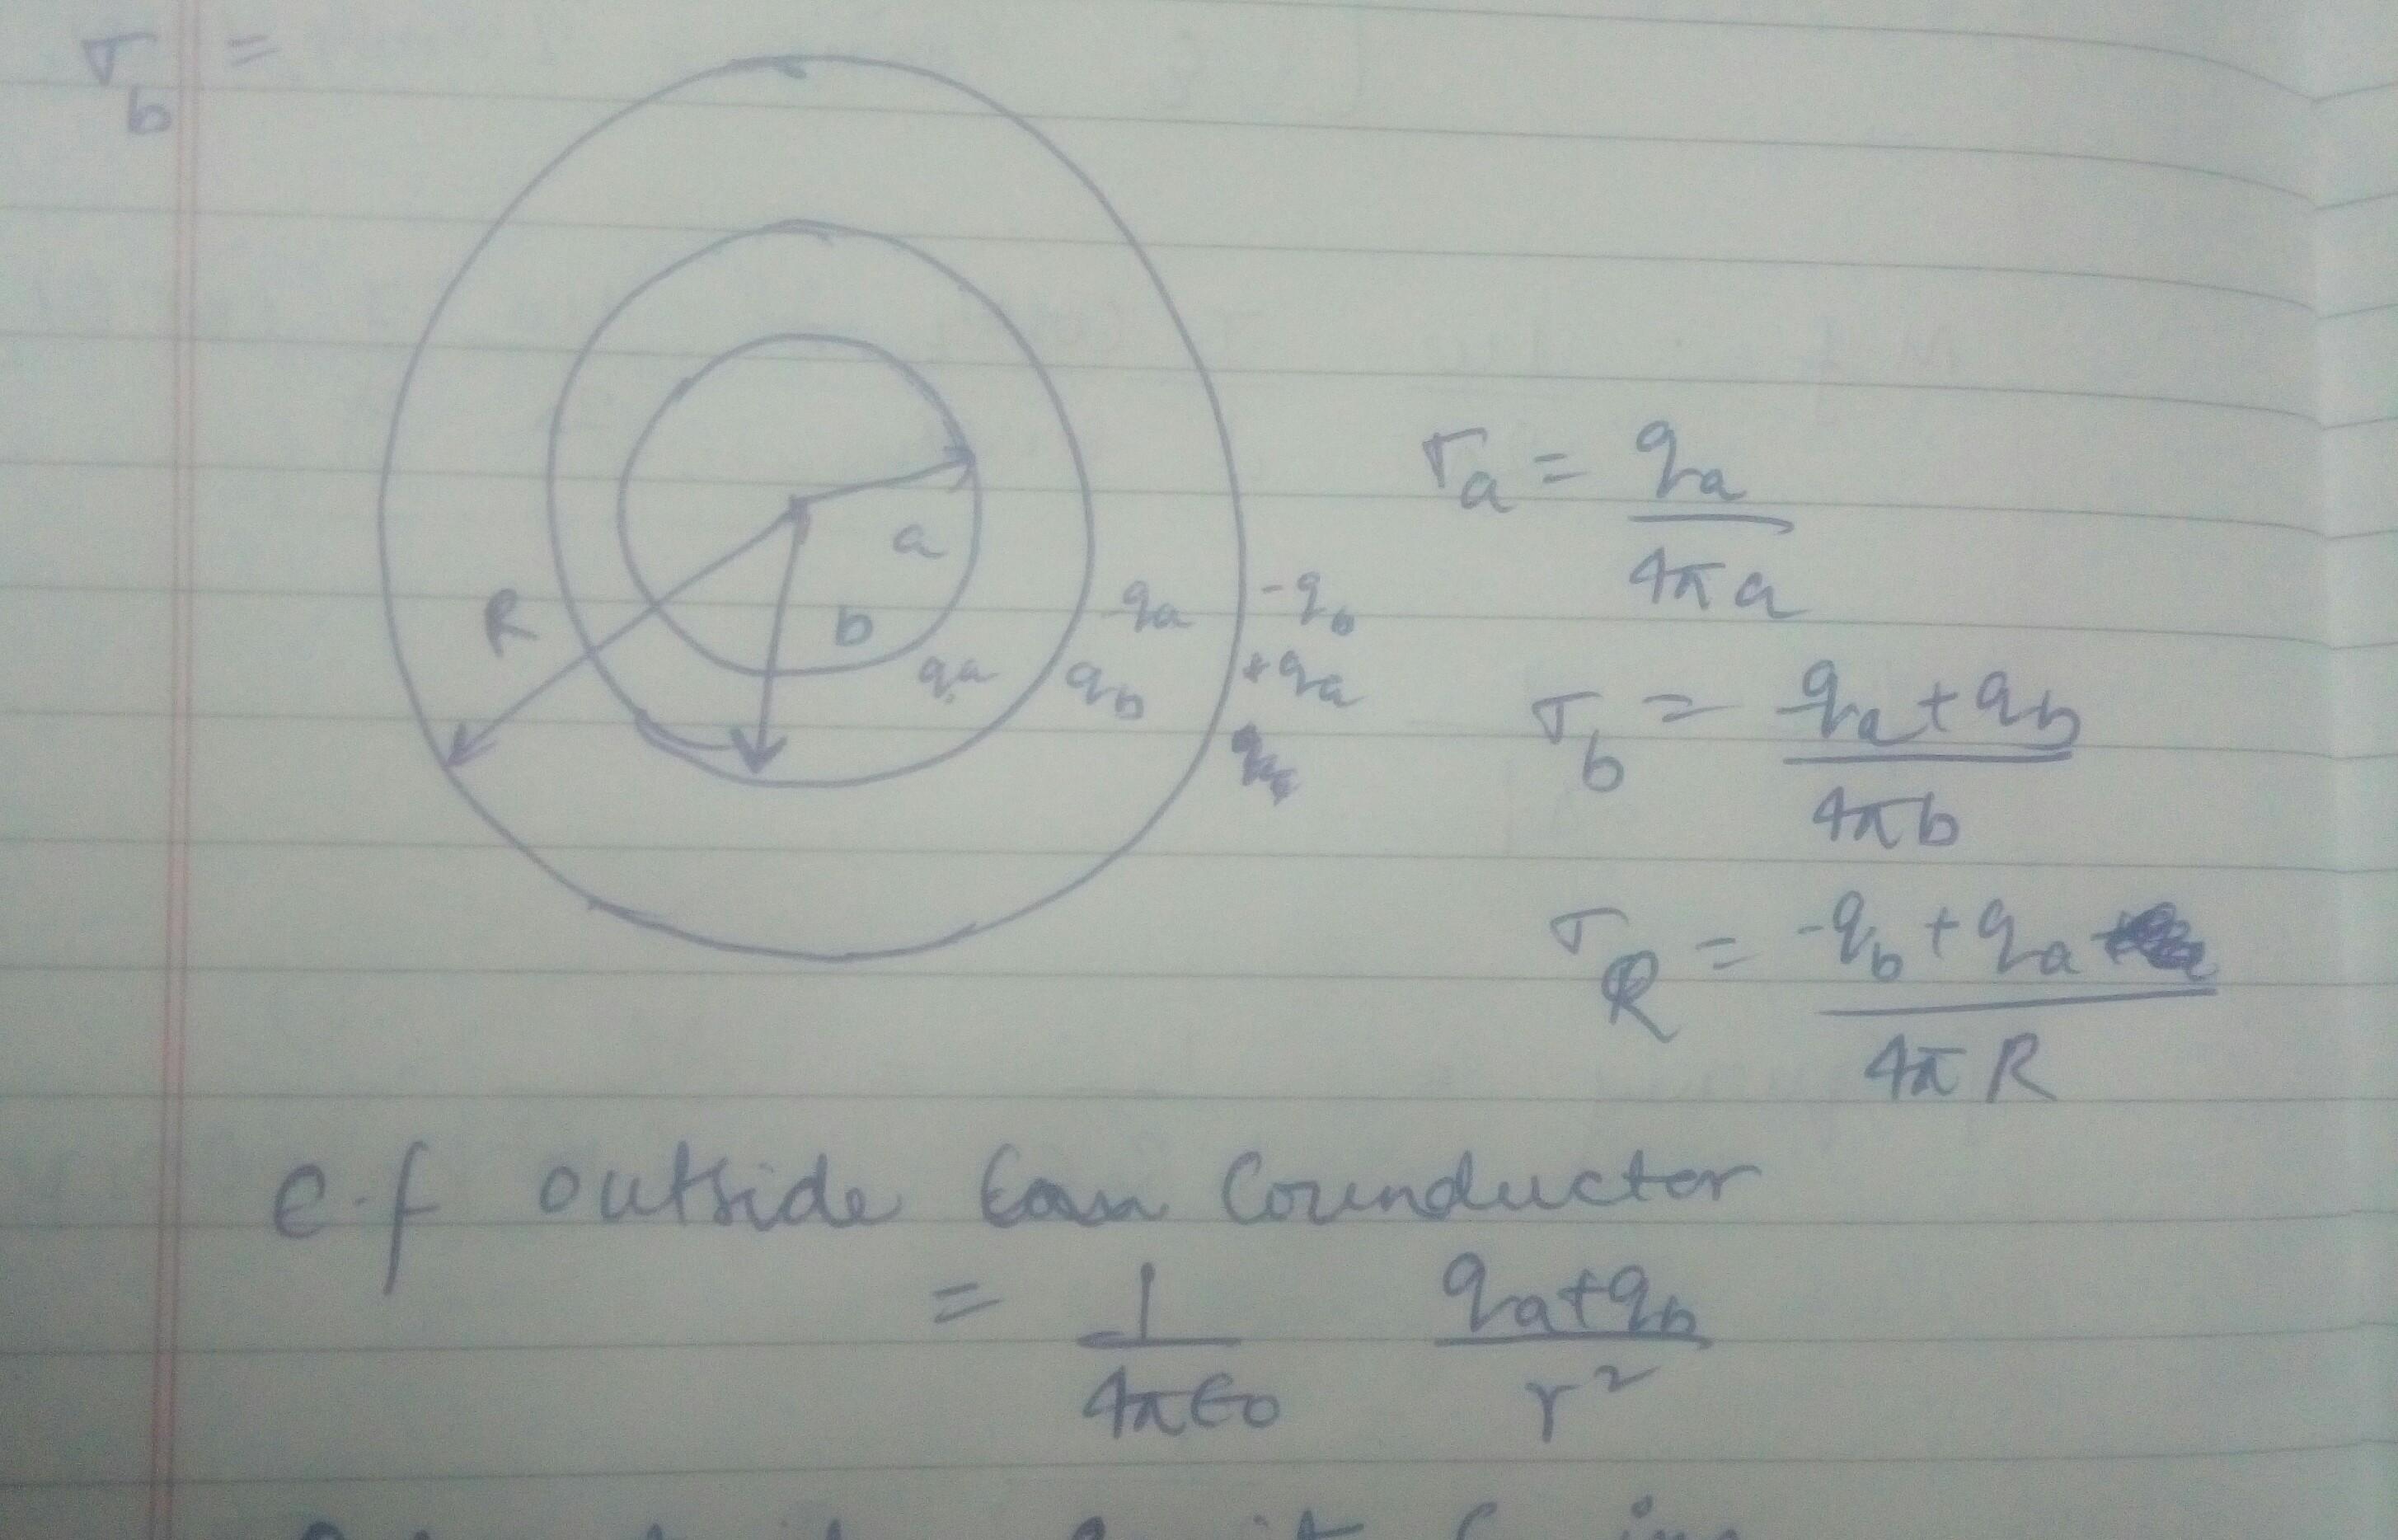 σ_b =
R
a
b
q_a
-q_a
q_b
-q_b
+q_a
σ_a = q_a / 4π a
σ_b = -q_a + q_b / 4π b
σ_R = -q_b + q_a / 4π R
e.f outside Counductor
= 1 / 4π ε0 q_a + q_b / r²